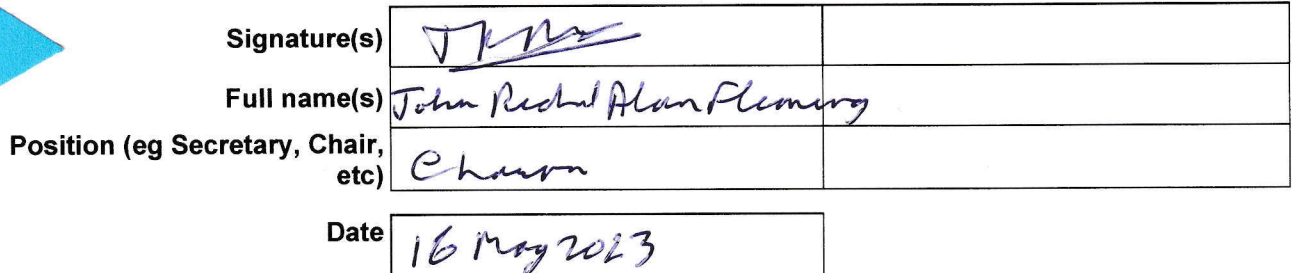 Signature(s)
Full name(s) John Richard Alan Fleming
Position (eg Secretary, Chair,
etc) Chairman
Date 16 May 2023